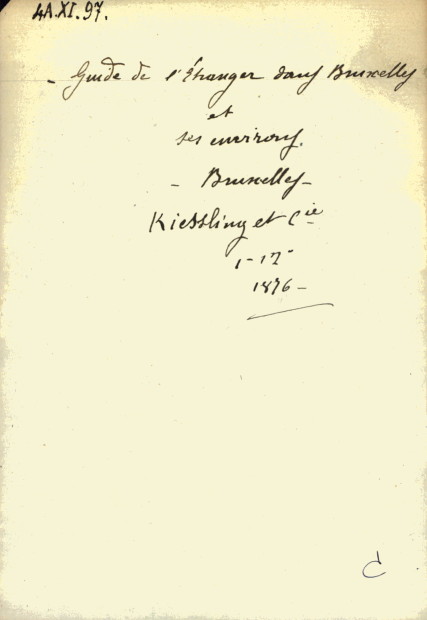 4A.XI.97.
- Guide de l'Étranger dans Bruxelles
et
ses environs.
- Bruxelles -
Kiessling et Cie
1-12°
1876 -
C